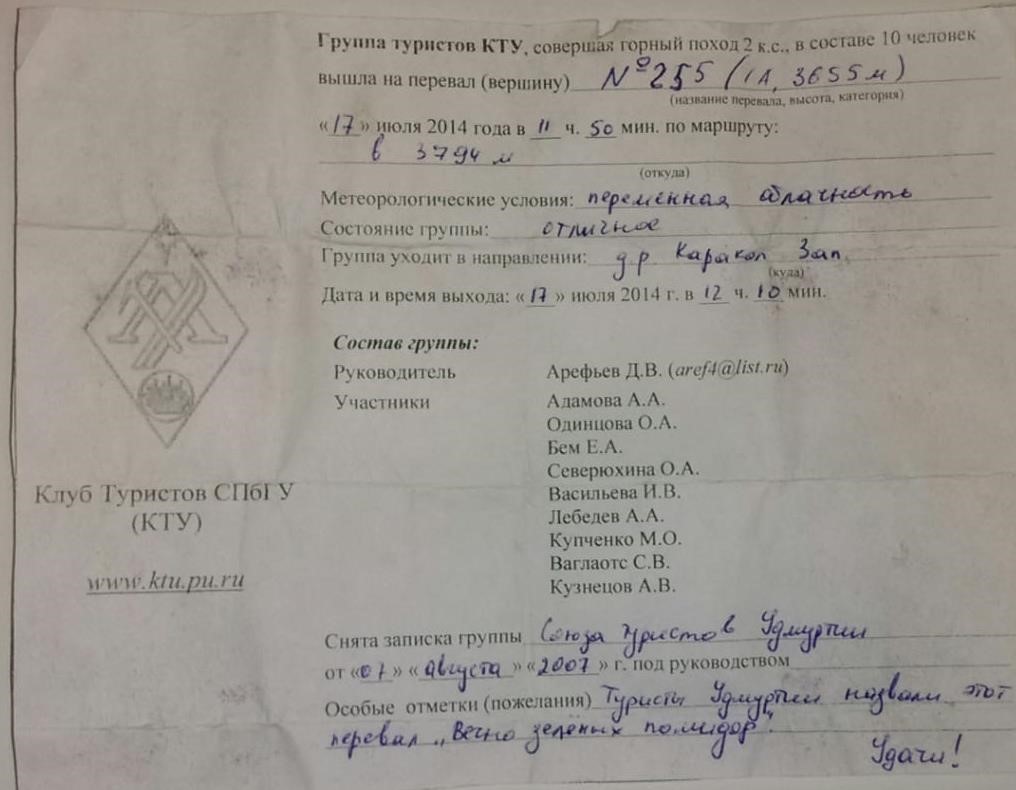 Группа туристов КТУ, совершая горный поход 2 к.с., в составе 10 человек
вышла на перевал (вершину) №255 (1А, 3655м)
(название перевала, высота, категория)
«17» июля 2014 года в 11 ч. 50 мин. по маршруту:
в 3794 м
(откуда)
Метеорологические условия: переменная облачность
Состояние группы: отличное
Группа уходит в направлении: д.р Каракол Зап.
(куда)
Дата и время выхода: «17» июля 2014 г. в 12 ч. 10 мин.
Состав группы:
Руководитель Арефьев Д.В. (aref4@list.ru)
Участники Адамова А.А.
Одинцова О.А.
Бем Е.А.
Северюхина О.А.
Васильева И.В.
Лебедев А.А.
Купченко М.О.
Ваглаотс С.В.
Кузнецов А.В.
Клуб Туристов СПбГУ
(КТУ)
www.ktu.pu.ru
Снята записка группы Союза туристов Удмуртии
от «07» «августа» «2007» г. под руководством
Особые отметки (пожелания) Туристы Удмуртии назвали этот
перевал „Вечно зелёных помидор".
Удачи!